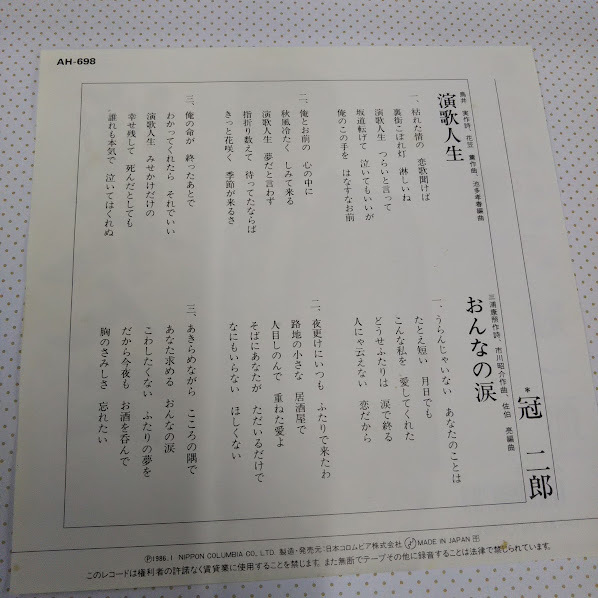 AH-698
冠 二郎
演歌人生
鳥井 実作詩、花笠 薫作曲、池多孝春編曲
一、枯れた情の 恋歌聞けば
裏街こぼれ灯 淋しいね
演歌人生 つらいと言って
坂道転げて 泣いてもいいが
俺のこの手を はなすなお前
二、俺とお前の 心の中に
秋風冷たく しみて来る
演歌人生 夢だと言わず
指折り数えて 待ってたならば
きっと花咲く 季節が来るさ
三、俺の命が 終ったあとで
わかってくれたら それでいい
演歌人生 みせかけだけの
幸せ残して 死んだとしても
誰れも本気で 泣いてはくれぬ
おんなの涙
三浦康照作詩、市川昭介作曲、佐伯 亮編曲
一、うらんじゃいない あなたのことは
たとえ短い 月日でも
こんな私を 愛してくれた
どうせふたりは 涙で終る
人にゃ云えない 恋だから
二、夜更けにいつも ふたりで来たわ
路地の小さな 居酒屋で
人目しのんで 重ねた愛よ
そばにあなたが ただいるだけで
なにもいらない ほしくない
三、あきらめながら こころの隅で
あなた求める おんなの涙
こわしたくない ふたりの夢を
だから今夜も お酒を呑んで
胸のさみしさ 忘れたい
Ⓟ1986.1 NIPPON COLUMBIA CO., LTD. 製造・発売元:日本コロムビア株式会社 MADE IN JAPAN
このレコードは権利者の許諾なく賃貸業に使用することを禁じます。また無断でテープその他に録音することは法律で禁じられています。